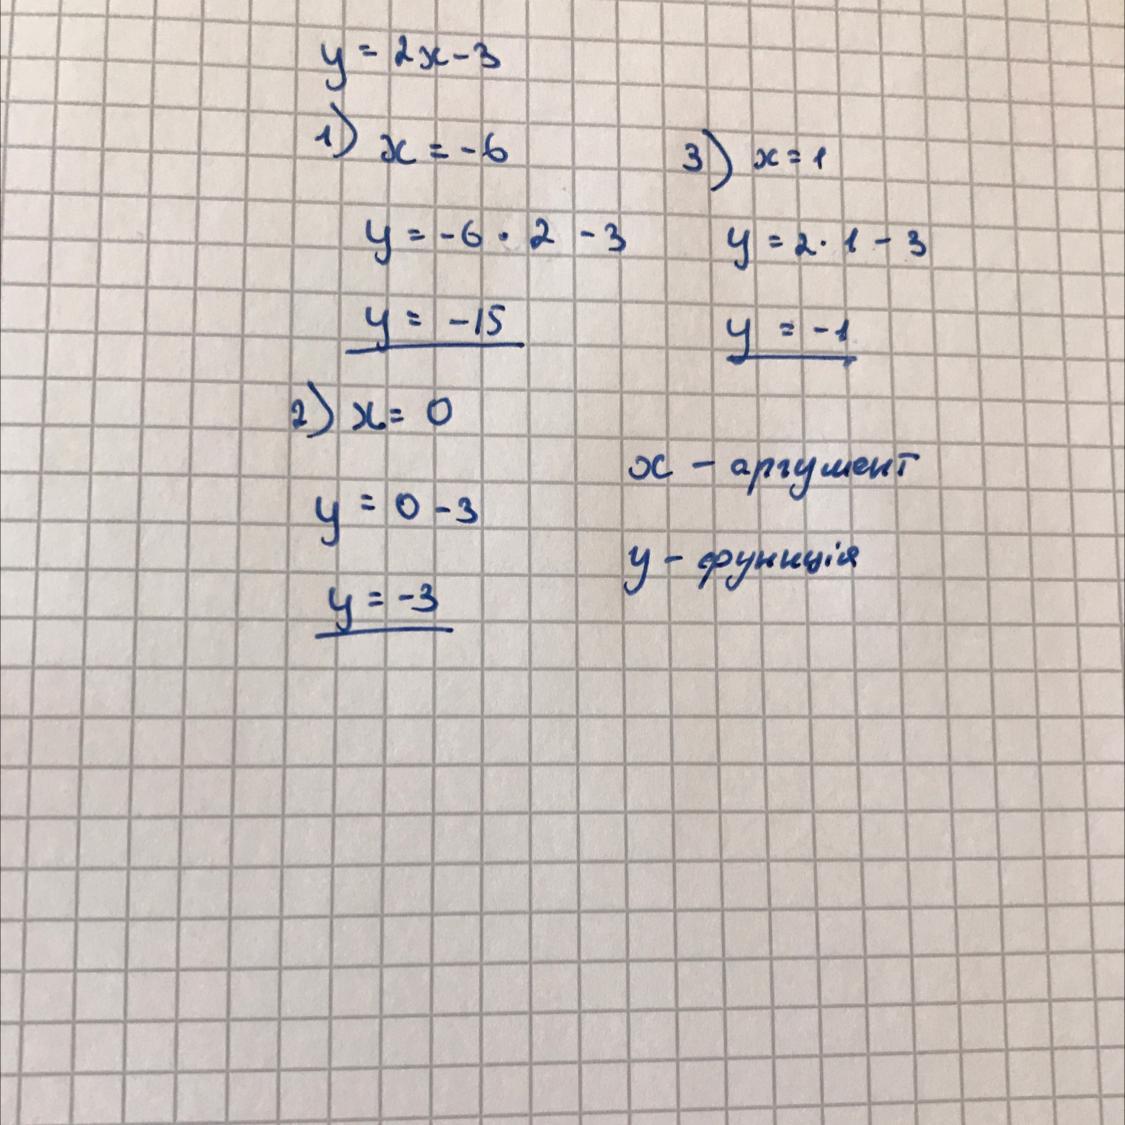 y = 2x - 3
1) x = -6
y = -6 · 2 - 3
y = -15
2) x = 0
y = 0 - 3
y = -3
3) x = 1
y = 2 · 1 - 3
y = -1
x - аргумент
y - функція